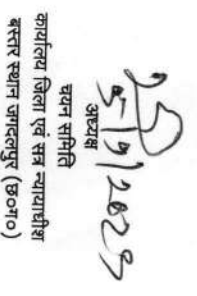 5/9/2023
अध्यक्ष
चयन समिति
कार्यालय जिला एवं सत्र न्यायाधीश
बस्तर स्थान जगदलपुर (छ०ग०)